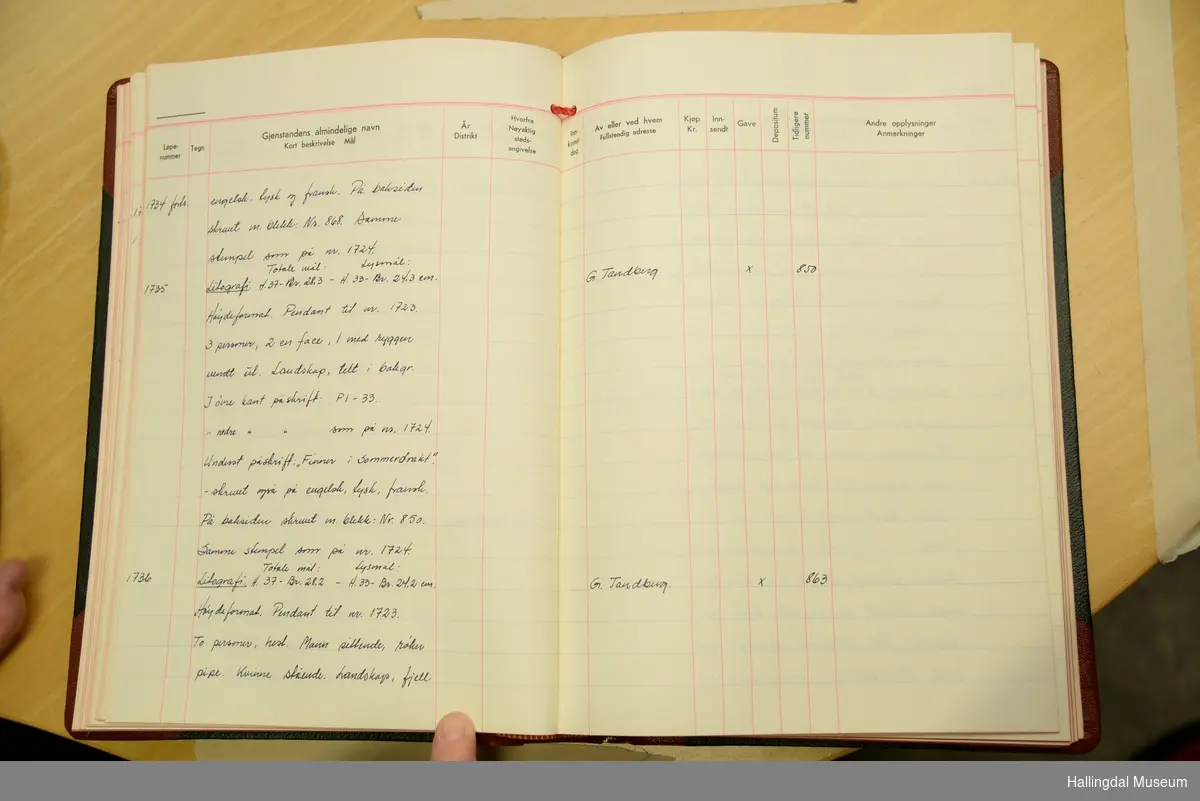 Løpe-
nummer
Tegn
Gjenstandens almindelige navn
Kort beskrivelse Mål
År
Distrikt
Hvorfra
Nøyaktig
steds-
angivelse
Inn-
kommen
dag
Av eller ved hvem
Fullstendig adresse
Kjøp
Kr.
Inn-
sendt
Gave
Depositum
Tidligere
nummer
Andre opplysninger
Anmerkninger
1734 forts. engelsk, tysk og fransk. På baksiden
skrevet m. blekk: Nr. 868. Samme
stempel som på nr. 1724.
Totale mål: Lysmål:
1735 Litografi. H. 37 - Br. 28,3 - H. 33 - Br. 24,3 cm. G. Tandberg. x 850
Høydeformat. Pendant til nr. 1723.
3 personer, 2 en face, 1 med ryggen
vendt til. Landskap, telt i bakgr.
I øvre kant påskrift: Pl - 33.
" nedre " " som på nr. 1724.
Underst påskrift: „Finner i Sommerdrakt".
- skrevet også på engelsk, tysk, fransk.
På baksiden skrevet m. blekk: Nr. 850.
Samme stempel som på nr. 1724.
Totale mål: Lysmål:
1736 Litografi. H. 37 - Br. 28,2 - H. 33 - Br. 24,2 cm. G. Tandberg. x 863
Høydeformat. Pendant til nr. 1723.
To personer, hest. Mann sittende, røker
pipe. Kvinne stående. Landskap, fjell
Hallingdal Museum